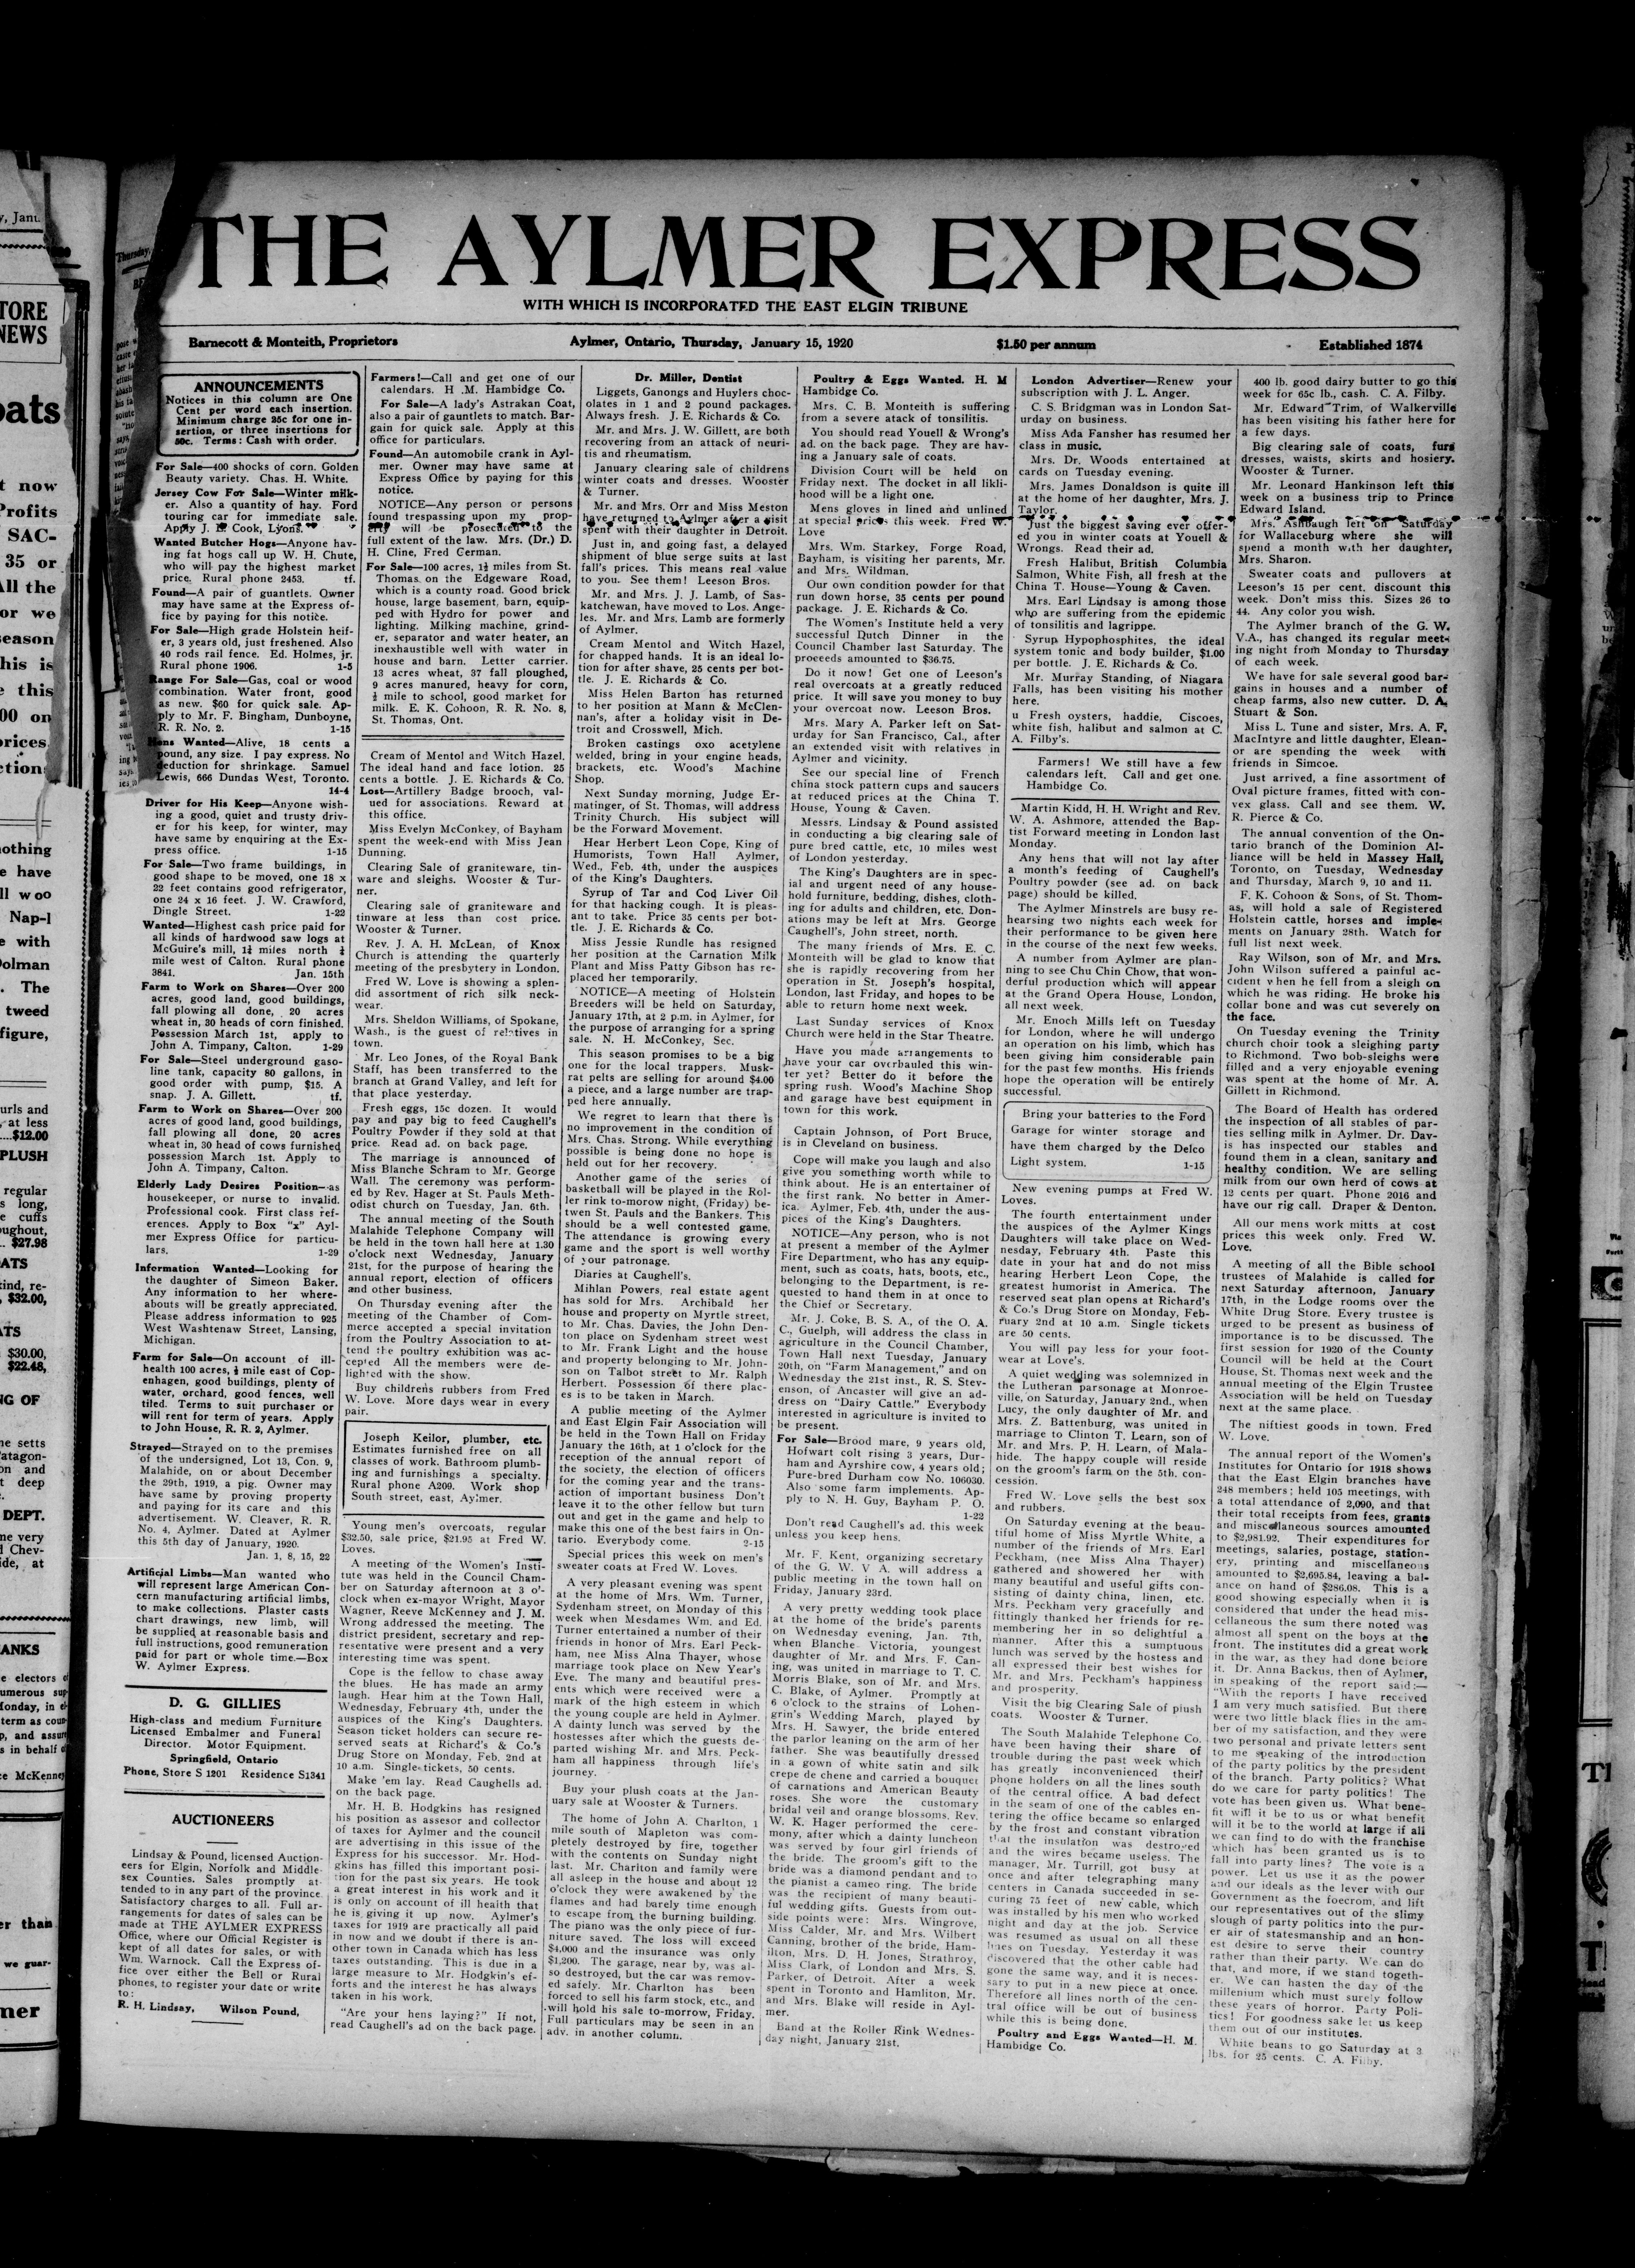 y, Jant.
TORE
NEWS
oats
t now
Profits
SAC-
35 or
All the
or we
season
his is
e this
00 on
prices
ction
nothing
e have
ll woo
Nap-l
e with
Dolman
. The
tweed
figure,
urls and
, at less
....$12.00
PLUSH
regular
s long,
e cuffs
oughout,
.. $27.98
ATS
kind, re-
, $32.00,
ATS
$30.00,
$22.48,
NG OF
ne setts
Patagon-
on and
t deep
DEPT.
ne very
d Chev-
ide, at
ANKS
e electors of
umerous sup-
Monday, in
term as coun-
p, and assure
s in behalf of
ce McKenney
er than
we guar-
mer
Thursday,
THE AYLMER EXPRESS
WITH WHICH IS INCORPORATED THE EAST ELGIN TRIBUNE
Barnecott & Monteith, Proprietors
Aylmer, Ontario, Thursday, January 15, 1920
$1.50 per annum
Established 1874
ANNOUNCEMENTS
Notices in this column are One
Cent per word each insertion.
Minimum charge 25c for one in-
sertion, or three insertions for
50c. Terms: Cash with order.
For Sale—400 shocks of corn. Golden
Beauty variety. Chas. H. White.
Jersey Cow For Sale—Winter milk-
er. Also a quantity of hay. Ford
touring car for immediate sale.
Apply J. L. Cook, Lyons.
Wanted Butcher Hogs—Anyone hav-
ing fat hogs call up W. H. Chute,
who will pay the highest market
price. Rural phone 2453. tf.
Found—A pair of gauntlets. Owner
may have same at the Express of-
fice by paying for this notice.
For Sale—High grade Holstein heif-
er, 3 years old, just freshened. Also
40 rods rail fence. Ed. Holmes, jr.
Rural phone 1906. 1-5
Range For Sale—Gas, coal or wood
combination. Water front, good
as new. $60 for quick sale. Ap-
ply to Mr. F. Bingham, Dunboyne,
R. R. No. 2. 1-15
Hens Wanted—Alive, 18 cents a
pound, any size. I pay express. No
deduction for shrinkage. Samuel
Lewis, 666 Dundas West, Toronto.
14-4
Driver for His Keep—Anyone wish-
ing a good, quiet and trusty driv-
er for his keep, for winter, may
have same by enquiring at the Ex-
press office. 1-15
For Sale—Two frame buildings, in
good shape to be moved, one 18 x
22 feet contains good refrigerator,
one 24 x 16 feet. J. W. Crawford,
Dingle Street. 1-22
Wanted—Highest cash price paid for
all kinds of hardwood saw logs at
McGuire's mill, 1¼ miles north ¼
mile west of Calton. Rural phone
3841. Jan. 15th
Farm to Work on Shares—Over 200
acres, good land, good buildings,
fall plowing all done, 20 acres
wheat in, 30 heads of corn finished.
Possession March 1st, apply to
John A. Timpany, Calton. 1-29
For Sale—Steel underground gaso-
line tank, capacity 80 gallons, in
good order with pump, $15. A
snap. J. A. Gillett. tf.
Farm to Work on Shares—Over 200
acres of good land, good buildings,
fall plowing all done, 20 acres
wheat in, 30 head of cows furnished
possession March 1st. Apply to
John A. Timpany, Calton.
Elderly Lady Desires Position—as
housekeeper, or nurse to invalid.
Professional cook. First class ref-
erences. Apply to Box "x" Ayl-
mer Express Office for particu-
lars. 1-29
Information Wanted—Looking for
the daughter of Simeon Baker.
Any information to her where-
abouts will be greatly appreciated.
Please address information to 925
West Washtenaw Street, Lansing,
Michigan.
Farm for Sale—On account of ill-
health 100 acres, ½ mile east of Cop-
enhagen, good buildings, plenty of
water, orchard, good fences, well
tiled. Terms to suit purchaser or
will rent for term of years. Apply
to John House, R. R. 2, Aylmer.
Strayed—Strayed on to the premises
of the undersigned, Lot 13, Con. 9,
Malahide, on or about December
the 29th, 1919, a pig. Owner may
have same by proving property
and paying for its care and this
advertisement. W. Cleaver, R. R.
No. 4, Aylmer. Dated at Aylmer
this 5th day of January, 1920.
Jan. 1, 8, 15, 22
Artificial Limbs—Man wanted who
will represent large American Con-
cern manufacturing artificial limbs,
to make collections. Plaster casts
chart drawings, new limb, will
be supplied at reasonable basis and
full instructions, good remuneration
paid for part or whole time.—Box
W. Aylmer Express.
D. G. GILLIES
High-class and medium Furniture
Licensed Embalmer and Funeral
Director. Motor Equipment.
Springfield, Ontario
Phone, Store S 1201 Residence S1341
AUCTIONEERS
Lindsay & Pound, licensed Auction-
eers for Elgin, Norfolk and Middle-
sex Counties. Sales promptly at-
tended to in any part of the province
Satisfactory charges to all. Full ar-
rangements for dates of sales can be
made at THE AYLMER EXPRESS
Office, where our Official Register is
kept of all dates for sales, or with
Wm. Warnock. Call the Express of-
fice over either the Bell or Rural
phones, to register your date or write
to:
R. H. Lindsay, Wilson Pound,
Farmers!—Call and get one of our
calendars. H .M. Hambidge Co.
For Sale—A lady's Astrakan Coat,
also a pair of gauntlets to match. Bar-
gain for quick sale. Apply at this
office for particulars.
Found—An automobile crank in Ayl-
mer. Owner may have same at
Express Office by paying for this
notice.
NOTICE—Any person or persons
found trespassing upon my prop-
erty will be prosecuted to the
full extent of the law. Mrs. (Dr.) D.
H. Cline, Fred German.
For Sale—100 acres, 1½ miles from St.
Thomas on the Edgeware Road,
which is a county road. Good brick
house, large basement, barn, equip-
ped with Hydro for power and
lighting. Milking machine, grind-
er, separator and water heater, an
inexhaustible well with water in
house and barn. Letter carrier.
13 acres wheat, 37 fall ploughed,
9 acres manured, heavy for corn,
½ mile to school, good market for
milk. E. K. Cohoon, R. R. No. 8,
St. Thomas, Ont.
Cream of Mentol and Witch Hazel.
The ideal hand and face lotion. 25
cents a bottle. J. E. Richards & Co.
Lost—Artillery Badge brooch, val-
ued for associations. Reward at
this office.
Miss Evelyn McConkey, of Bayham
spent the week-end with Miss Jean
Dunning.
Clearing Sale of graniteware, tin-
ware and sleighs. Wooster & Tur-
ner.
Clearing sale of graniteware and
tinware at less than cost price.
Wooster & Turner.
Rev. J. A. H. McLean, of Knox
Church is attending the quarterly
meeting of the presbytery in London.
Fred W. Love is showing a splen-
did assortment of rich silk neck-
wear.
Mrs. Sheldon Williams, of Spokane,
Wash., is the guest of relatives in
town.
Mr. Leo Jones, of the Royal Bank
Staff, has been transferred to the
branch at Grand Valley, and left for
that place yesterday.
Fresh eggs, 15c dozen. It would
pay and pay big to feed Caughell's
Poultry Powder if they sold at that
price. Read ad. on back page.
The marriage is announced of
Miss Blanche Schram to Mr. George
Wall. The ceremony was perform-
ed by Rev. Hager at St. Pauls Meth-
odist church on Tuesday, Jan. 6th.
The annual meeting of the South
Malahide Telephone Company will
be held in the town hall here at 1.30
o'clock next Wednesday, January
21st, for the purpose of hearing the
annual report, election of officers
and other business.
On Thursday evening after the
meeting of the Chamber of Com-
merce accepted a special invitation
from the Poultry Association to at-
tend the poultry exhibition was ac-
cepted All the members were de-
lighted with the show.
Buy childrens rubbers from Fred
W. Love. More days wear in every
pair.
Joseph Keilor, plumber, etc.
Estimates furnished free on all
classes of work. Bathroom plumb-
ing and furnishings a specialty.
Rural phone A209. Work shop
South street, east, Aylmer.
Young men's overcoats, regular
$32.50, sale price, $21.95 at Fred W.
Loves.
A meeting of the Women's Insti-
tute was held in the Council Cham-
ber on Saturday afternoon at 3 o'-
clock when ex-mayor Wright, Mayor
Wagner, Reeve McKenney and J. M.
Wrong addressed the meeting. The
district president, secretary and rep-
resentative were present and a very
interesting time was spent.
Cope is the fellow to chase away
the blues. He has made an army
laugh. Hear him at the Town Hall,
Wednesday, February 4th, under the
auspices of the King's Daughters.
Season ticket holders can secure re-
served seats at Richard's & Co.'s
Drug Store on Monday, Feb. 2nd at
10 a.m. Single tickets, 50 cents.
Make 'em lay. Read Caughells ad.
on the back page.
Mr. H. B. Hodgkins has resigned
his position as assesor and collector
of taxes for Aylmer and the council
are advertising in this issue of the
Express for his successor. Mr. Hod-
gkins has filled this important posi-
tion for the past six years. He took
a great interest in his work and it
is only on account of ill health that
he is giving it up now. Aylmer's
taxes for 1919 are practically all paid
in now and we doubt if there is an-
other town in Canada which has less
taxes outstanding. This is due in a
large measure to Mr. Hodgkin's ef-
forts and the interest he has always
taken in his work.
"Are your hens laying?" If not,
read Caughell's ad on the back page.
Dr. Miller, Dentist
Liggets, Ganongs and Huylers choc-
olates in 1 and 2 pound packages.
Always fresh. J. E. Richards & Co.
Mr. and Mrs. J. W. Gillett, are both
recovering from an attack of neuri-
tis and rheumatism.
January clearing sale of childrens
winter coats and dresses. Wooster
& Turner.
Mr. and Mrs. Orr and Miss Meston
have returned to Aylmer after a visit
spent with their daughter in Detroit.
Just in, and going fast, a delayed
shipment of blue serge suits at last
fall's prices. This means real value
to you. See them! Leeson Bros.
Mr. and Mrs. J. J. Lamb, of Sas-
katchewan, have moved to Los. Ange-
les. Mr. and Mrs. Lamb are formerly
of Aylmer.
Cream Mentol and Witch Hazel,
for chapped hands. It is an ideal lo-
tion for after shave, 25 cents per bot-
tle. J. E. Richards & Co.
Miss Helen Barton has returned
to her position at Mann & McClen-
nan's, after a holiday visit in De-
troit and Crosswell, Mich.
Broken castings oxo acetylene
welded, bring in your engine heads,
brackets, etc. Wood's Machine
Shop.
Next Sunday morning, Judge Er-
matinger, of St. Thomas, will address
Trinity Church. His subject will
be the Forward Movement.
Hear Herbert Leon Cope, King of
Humorists, Town Hall Aylmer,
Wed., Feb. 4th, under the auspices
of the King's Daughters.
Syrup of Tar and Cod Liver Oil
for that hacking cough. It is pleas-
ant to take. Price 35 cents per bot-
tle. J. E. Richards & Co.
Miss Jessie Rundle has resigned
her position at the Carnation Milk
Plant and Miss Patty Gibson has re-
placed her temporarily.
NOTICE—A meeting of Holstein
Breeders will be held on Saturday,
January 17th, at 2 p.m. in Aylmer, for
the purpose of arranging for a spring
sale. N. H. McConkey, Sec.
This season promises to be a big
one for the local trappers. Musk-
rat pelts are selling for around $4.00
a piece, and a large number are trap-
ped here annually.
We regret to learn that there is
no improvement in the condition of
Mrs. Chas. Strong. While everything
possible is being done no hope is
held out for her recovery.
Another game of the series of
basketball will be played in the Rol-
ler rink to-morow night, (Friday) be-
twen St. Pauls and the Bankers. This
should be a well contested game.
The attendance is growing every
game and the sport is well worthy
of your patronage.
Diaries at Caughell's.
Mihlan Powers, real estate agent
has sold for Mrs. Archibald her
house and property on Myrtle street,
to Mr. Chas. Davies, the John Den-
ton place on Sydenham street west
to Mr. Frank Light and the house
and property belonging to Mr. John-
son on Talbot street to Mr. Ralph
Herbert. Possession of there plac-
es is to be taken in March.
A public meeting of the Aylmer
and East Elgin Fair Association will
be held in the Town Hall on Friday
January the 16th, at 1 o'clock for the
reception of the annual report of
the society, the election of officers
for the coming year and the trans-
action of important business Don't
leave it to the other fellow but turn
out and get in the game and help to
make this one of the best fairs in On-
tario. Everybody come. 2-15
Special prices this week on men's
sweater coats at Fred W. Loves.
A very pleasant evening was spent
at the home of Mrs. Wm. Turner,
Sydenham street, on Monday of this
week when Mesdames Wm. and Ed.
Turner entertained a number of their
friends in honor of Mrs. Earl Peck-
ham, nee Miss Alna Thayer, whose
marriage took place on New Year's
Eve. The many and beautiful pres-
ents which were received were a
mark of the high esteem in which
the young couple are held in Aylmer.
A dainty lunch was served by the
hostesses after which the guests de-
parted wishing Mr. and Mrs. Peck-
ham all happiness through life's
journey.
Buy your plush coats at the Jan-
uary sale at Wooster & Turners.
The home of John A. Charlton, 1
mile south of Mapleton was com-
pletely destroyed by fire, together
with the contents on Sunday night
last. Mr. Charlton and family were
all asleep in the house and about 12
o'clock they were awakened by the
flames and had barely time enough
to escape from the burning building.
The piano was the only piece of fur-
niture saved. The loss will exceed
$4,000 and the insurance was only
$1,200. The garage, near by, was al-
so destroyed, but the car was remov-
ed safely. Mr. Charlton has been
forced to sell his farm stock, etc., and
will hold his sale to-morrow, Friday.
Full particulars may be seen in an
adv. in another column.
Poultry & Eggs Wanted. H. M
Hambidge Co.
Mrs. C. B. Monteith is suffering
from a severe atack of tonsilitis.
You should read Youell & Wrong's
ad. on the back page. They are hav-
ing a January sale of coats.
Division Court will be held on
Friday next. The docket in all likli-
hood will be a light one.
Mens gloves in lined and unlined
at special prices this week. Fred W.
Love
Mrs. Wm. Starkey, Forge Road,
Bayham, is visiting her parents, Mr.
and Mrs. Wildman.
Our own condition powder for that
run down horse, 35 cents per pound
package. J. E. Richards & Co.
The Women's Institute held a very
successful Dutch Dinner in the
Council Chamber last Saturday. The
proceeds amounted to $36.75.
Do it now! Get one of Leeson's
real overcoats at a greatly reduced
price. It will save you money to buy
your overcoat now. Leeson Bros.
Mrs. Mary A. Parker left on Sat-
urday for San Francisco, Cal., after
an extended visit with relatives in
Aylmer and vicinity.
See our special line of French
china stock pattern cups and saucers
at reduced prices at the China T.
House, Young & Caven.
Messrs. Lindsay & Pound assisted
in conducting a big clearing sale of
pure bred cattle, etc, 10 miles west
of London yesterday.
The King's Daughters are in spec-
ial and urgent need of any house-
hold furniture, bedding, dishes, cloth-
ing for adults and children, etc. Don-
ations may be left at Mrs. George
Caughell's, John street, north.
The many friends of Mrs. E. C.
Monteith will be glad to know that
she is rapidly recovering from her
operation in St. Joseph's hospital,
London, last Friday, and hopes to be
able to return home next week.
Last Sunday services of Knox
Church were held in the Star Theatre.
Have you made arrangements to
have your car overhauled this win-
ter yet? Better do it before the
spring rush. Wood's Machine Shop
and garage have best equipment in
town for this work.
Captain Johnson, of Port Bruce,
is in Cleveland on business.
Cope will make you laugh and also
give you something worth while to
think about. He is an entertainer of
the first rank. No better in Amer-
ica. Aylmer, Feb. 4th, under the aus-
pices of the King's Daughters.
NOTICE—Any person, who is not
at present a member of the Aylmer
Fire Department, who has any equip-
ment, such as coats, hats, boots, etc.,
belonging to the Department, is re-
quested to hand them in at once to
the Chief or Secretary.
Mr. J. Coke, B. S. A., of the O. A.
C., Guelph, will address the class in
agriculture in the Council Chamber,
Town Hall next Tuesday, January
20th, on "Farm Management," and on
Wednesday the 21st inst., R. S. Stev-
enson, of Ancaster will give an ad-
dress on "Dairy Cattle." Everybody
interested in agriculture is invited to
be present.
For Sale—Brood mare, 9 years old,
Hofwart colt rising 3 years, Dur-
ham and Ayrshire cow, 4 years old;
Pure-bred Durham cow No. 106030.
Also some farm implements. Ap-
ply to N. H. Guy, Bayham P. O.
1-22
Don't read Caughell's ad. this week
unless you keep hens.
Mr. F. Kent, organizing secretary
of the G. W. V A. will address a
public meeting in the town hall on
Friday, January 23rd.
A very pretty wedding took place
at the home of the bride's parents
on Wednesday evening, Jan. 7th,
when Blanche Victoria, youngest
daughter of Mr. and Mrs. F. Can-
ing, was united in marriage to T. C.
Morris Blake, son of Mr. and Mrs.
C. Blake, of Aylmer. Promptly at
6 o'clock to the strains of Lohen-
grin's Wedding March, played by
Mrs. H. Sawyer, the bride entered
the parlor leaning on the arm of her
father. She was beautifully dressed
in a gown of white satin and silk
crepe de chene and carried a bouquet
of carnations and American Beauty
roses. She wore the customary
bridal veil and orange blossoms. Rev.
W. K. Hager performed the cere-
mony, after which a dainty luncheon
was served by four girl friends of
the bride. The groom's gift to the
bride was a diamond pendant and to
the pianist a cameo ring. The bride
was the recipient of many beauti-
ful wedding gifts. Guests from out-
side points were: Mrs. Wingrove,
Miss Calder, Mr. and Mrs. Wilbert
Canning, brother of the bride, Ham-
ilton, Mrs. D. H. Jones, Strathroy,
Miss Clark, of London and Mrs. S.
Parker, of Detroit. After a week
spent in Toronto and Hamliton, Mr.
and Mrs. Blake will reside in Ayl-
mer.
Band at the Roller Rink Wednes-
day night, January 21st.
London Advertiser—Renew your
subscription with J. L. Anger.
C. S. Bridgman was in London Sat-
urday on business.
Miss Ada Fansher has resumed her
class in music.
Mrs. Dr. Woods entertained at
cards on Tuesday evening.
Mrs. James Donaldson is quite ill
at the home of her daughter, Mrs. J.
Taylor.
Just the biggest saving ever offer-
ed you in winter coats at Youell &
Wrongs. Read their ad.
Fresh Halibut, British Columbia
Salmon, White Fish, all fresh at the
China T. House—Young & Caven.
Mrs. Earl Lindsay is among those
who are suffering from the epidemic
of tonsilitis and lagrippe.
Syrup Hypophosphites, the ideal
system tonic and body builder, $1.00
per bottle. J. E. Richards & Co.
Mr. Murray Standing, of Niagara
Falls, has been visiting his mother
here.
u Fresh oysters, haddie, Ciscoes,
white fish, halibut and salmon at C.
A. Filby's.
Farmers! We still have a few
calendars left. Call and get one.
Hambidge Co.
Martin Kidd, H. H. Wright and Rev.
W. A. Ashmore, attended the Bap-
tist Forward meeting in London last
Monday.
Any hens that will not lay after
a month's feeding of Caughell's
Poultry powder (see ad. on back
page) should be killed.
The Aylmer Minstrels are busy re-
hearsing two nights each week for
their performance to be given here
in the course of the next few weeks.
A number from Aylmer are plan-
ning to see Chu Chin Chow, that won-
derful production which will appear
at the Grand Opera House, London,
all next week.
Mr. Enoch Mills left on Tuesday
for London, where he will undergo
an operation on his limb, which has
been giving him considerable pain
for the past few months. His friends
hope the operation will be entirely
successful.
Bring your batteries to the Ford
Garage for winter storage and
have them charged by the Delco
Light system. 1-15
New evening pumps at Fred W.
Loves.
The fourth entertainment under
the auspices of the Aylmer Kings
Daughters will take place on Wed-
nesday, February 4th. Paste this
date in your hat and do not miss
hearing Herbert Leon Cope, the
greatest humorist in America. The
reserved seat plan opens at Richard's
& Co.'s Drug Store on Monday, Feb-
ruary 2nd at 10 a.m. Single tickets
are 50 cents.
You will pay less for your foot-
wear at Love's.
A quiet wedding was solemnized in
the Lutheran parsonage at Monroe-
ville, on Saturday, January 2nd., when
Lucy, the only daughter of Mr. and
Mrs. Z. Battenburg, was united in
marriage to Clinton T. Learn, son of
Mr. and Mrs. P. H. Learn, of Mala-
hide. The happy couple will reside
on the groom's farm on the 5th. con-
cession.
Fred W. Love sells the best sox
and rubbers.
On Saturday evening at the beau-
tiful home of Miss Myrtle White, a
number of the friends of Mrs. Earl
Peckham, (nee Miss Alna Thayer)
gathered and showered her with
many beautiful and useful gifts con-
sisting of dainty china, linen, etc.
Mrs. Peckham very gracefully and
fittingly thanked her friends for re-
membering her in so delightful a
manner. After this a sumptuous
lunch was served by the hostess and
all expressed their best wishes for
Mr. and Mrs. Peckham's happiness
and prosperity.
Visit the big Clearing Sale of plush
coats. Wooster & Turner.
The South Malahide Telephone Co.
have been having their share of
trouble during the past week which
has greatly inconvenienced their
phone holders on all the lines south
of the central office. A bad defect
in the seam of one of the cables en-
tering the office became so enlarged
by the frost and constant vibration
that the insulation was destroyed
and the wires became useless. The
manager, Mr. Turrill, got busy at
once and after telegraphing many
centers in Canada succeeded in se-
curing 75 feet of new cable, which
was installed by his men who worked
night and day at the job. Service
was resumed as usual on all these
lines on Tuesday. Yesterday it was
discovered that the other cable had
gone the same way, and it is neces-
sary to put in a new piece at once.
Therefore all lines north of the cen-
tral office will be out of business
while this is being done.
Poultry and Eggs Wanted—H. M.
Hambidge Co.
400 lb. good dairy butter to go this
week for 65c lb., cash. C. A. Filby.
Mr. Edward Trim, of Walkerville
has been visiting his father here for
a few days.
Big clearing sale of coats, furs
dresses, waists, skirts and hosiery.
Wooster & Turner.
Mr. Leonard Hankinson left this
week on a business trip to Prince
Edward Island.
Mrs. Ashbaugh left on Saturday
for Wallaceburg where she will
spend a month with her daughter,
Mrs. Sharon.
Sweater coats and pullovers at
Leeson's 15 per cent. discount this
week. Don't miss this. Sizes 26 to
44. Any color you wish.
The Aylmer branch of the G. W.
V.A., has changed its regular meet-
ing night from Monday to Thursday
of each week.
We have for sale several good bar-
gains in houses and a number of
cheap farms, also new cutter. D. A.
Stuart & Son.
Miss L. Tune and sister, Mrs. A. F.
MacIntyre and little daughter, Elean-
or are spending the week with
friends in Simcoe.
Just arrived, a fine assortment of
Oval picture frames, fitted with con-
vex glass. Call and see them. W.
R. Pierce & Co.
The annual convention of the On-
tario branch of the Dominion Al-
liance will be held in Massey Hall,
Toronto, on Tuesday, Wednesday
and Thursday, March 9, 10 and 11.
F. K. Cohoon & Sons, of St. Thom-
as, will hold a sale of Registered
Holstein cattle, horses and imple-
ments on January 28th. Watch for
full list next week.
Ray Wilson, son of Mr. and Mrs.
John Wilson suffered a painful ac-
cident when he fell from a sleigh on
which he was riding. He broke his
collar bone and was cut severely on
the face.
On Tuesday evening the Trinity
church choir took a sleighing party
to Richmond. Two bob-sleighs were
filled and a very enjoyable evening
was spent at the home of Mr. A.
Gillett in Richmond.
The Board of Health has ordered
the inspection of all stables of par-
ties selling milk in Aylmer. Dr. Dav-
is has inspected our stables and
found them in a clean, sanitary and
healthy condition. We are selling
milk from our own herd of cows at
12 cents per quart. Phone 2016 and
have our rig call. Draper & Denton.
All our mens work mitts at cost
prices this week only. Fred W.
Love.
A meeting of all the Bible school
trustees of Malahide is called for
next Saturday afternoon, January
17th, in the Lodge rooms over the
White Drug Store. Every trustee is
urged to be present as business of
importance is to be discussed. The
first session for 1920 of the County
Council will be held at the Court
House, St. Thomas next week and the
annual meeting of the Elgin Trustee
Association will be held on Tuesday
next at the same place.
The niftiest goods in town. Fred
W. Love.
The annual report of the Women's
Institutes for Ontario for 1918 shows
that the East Elgin branches have
248 members; held 105 meetings, with
a total attendance of 2,090, and that
their total receipts from fees, grants
and miscellaneous sources amounted
to $2,981.92. Their expenditures for
meetings, salaries, postage, station-
ery, printing and miscellaneous
amounted to $2,695.84, leaving a bal-
ance on hand of $286.08. This is a
good showing especially when it is
considered that under the head mis-
cellaneous the sum there noted was
almost all spent on the boys at the
front. The institutes did a great work
in the war, as they had done before
it. Dr. Anna Backus, then of Aylmer,
in speaking of the report said:—
"With the reports I have received
I am very much satisfied. But there
were two little black flies in the am-
ber of my satisfaction, and they were
two personal and private letters sent
to me speaking of the introduction
of the party politics by the president
of the branch. Party politics? What
do we care for party politics! The
vote has been given us. What bene-
fit will it be to us or what benefit
will it be to the world at large if all
we can find to do with the franchise
which has been granted us is to
fall into party lines? The vote is a
power. Let us use it as the power
and our ideals as the lever with our
Government as the foecrom, and lift
our representatives out of the slimy
slough of party politics into the pur-
er air of statesmanship and an hon-
est desire to serve their country
rather than their party. We can do
that, and more, if we stand togeth-
er. We can hasten the day of the
millenium which must surely follow
these years of horror. Party Poli-
tics! For goodness sake let us keep
them out of our institutes.
White beans to go Saturday at 3
lbs. for 25 cents. C. A. Filby.